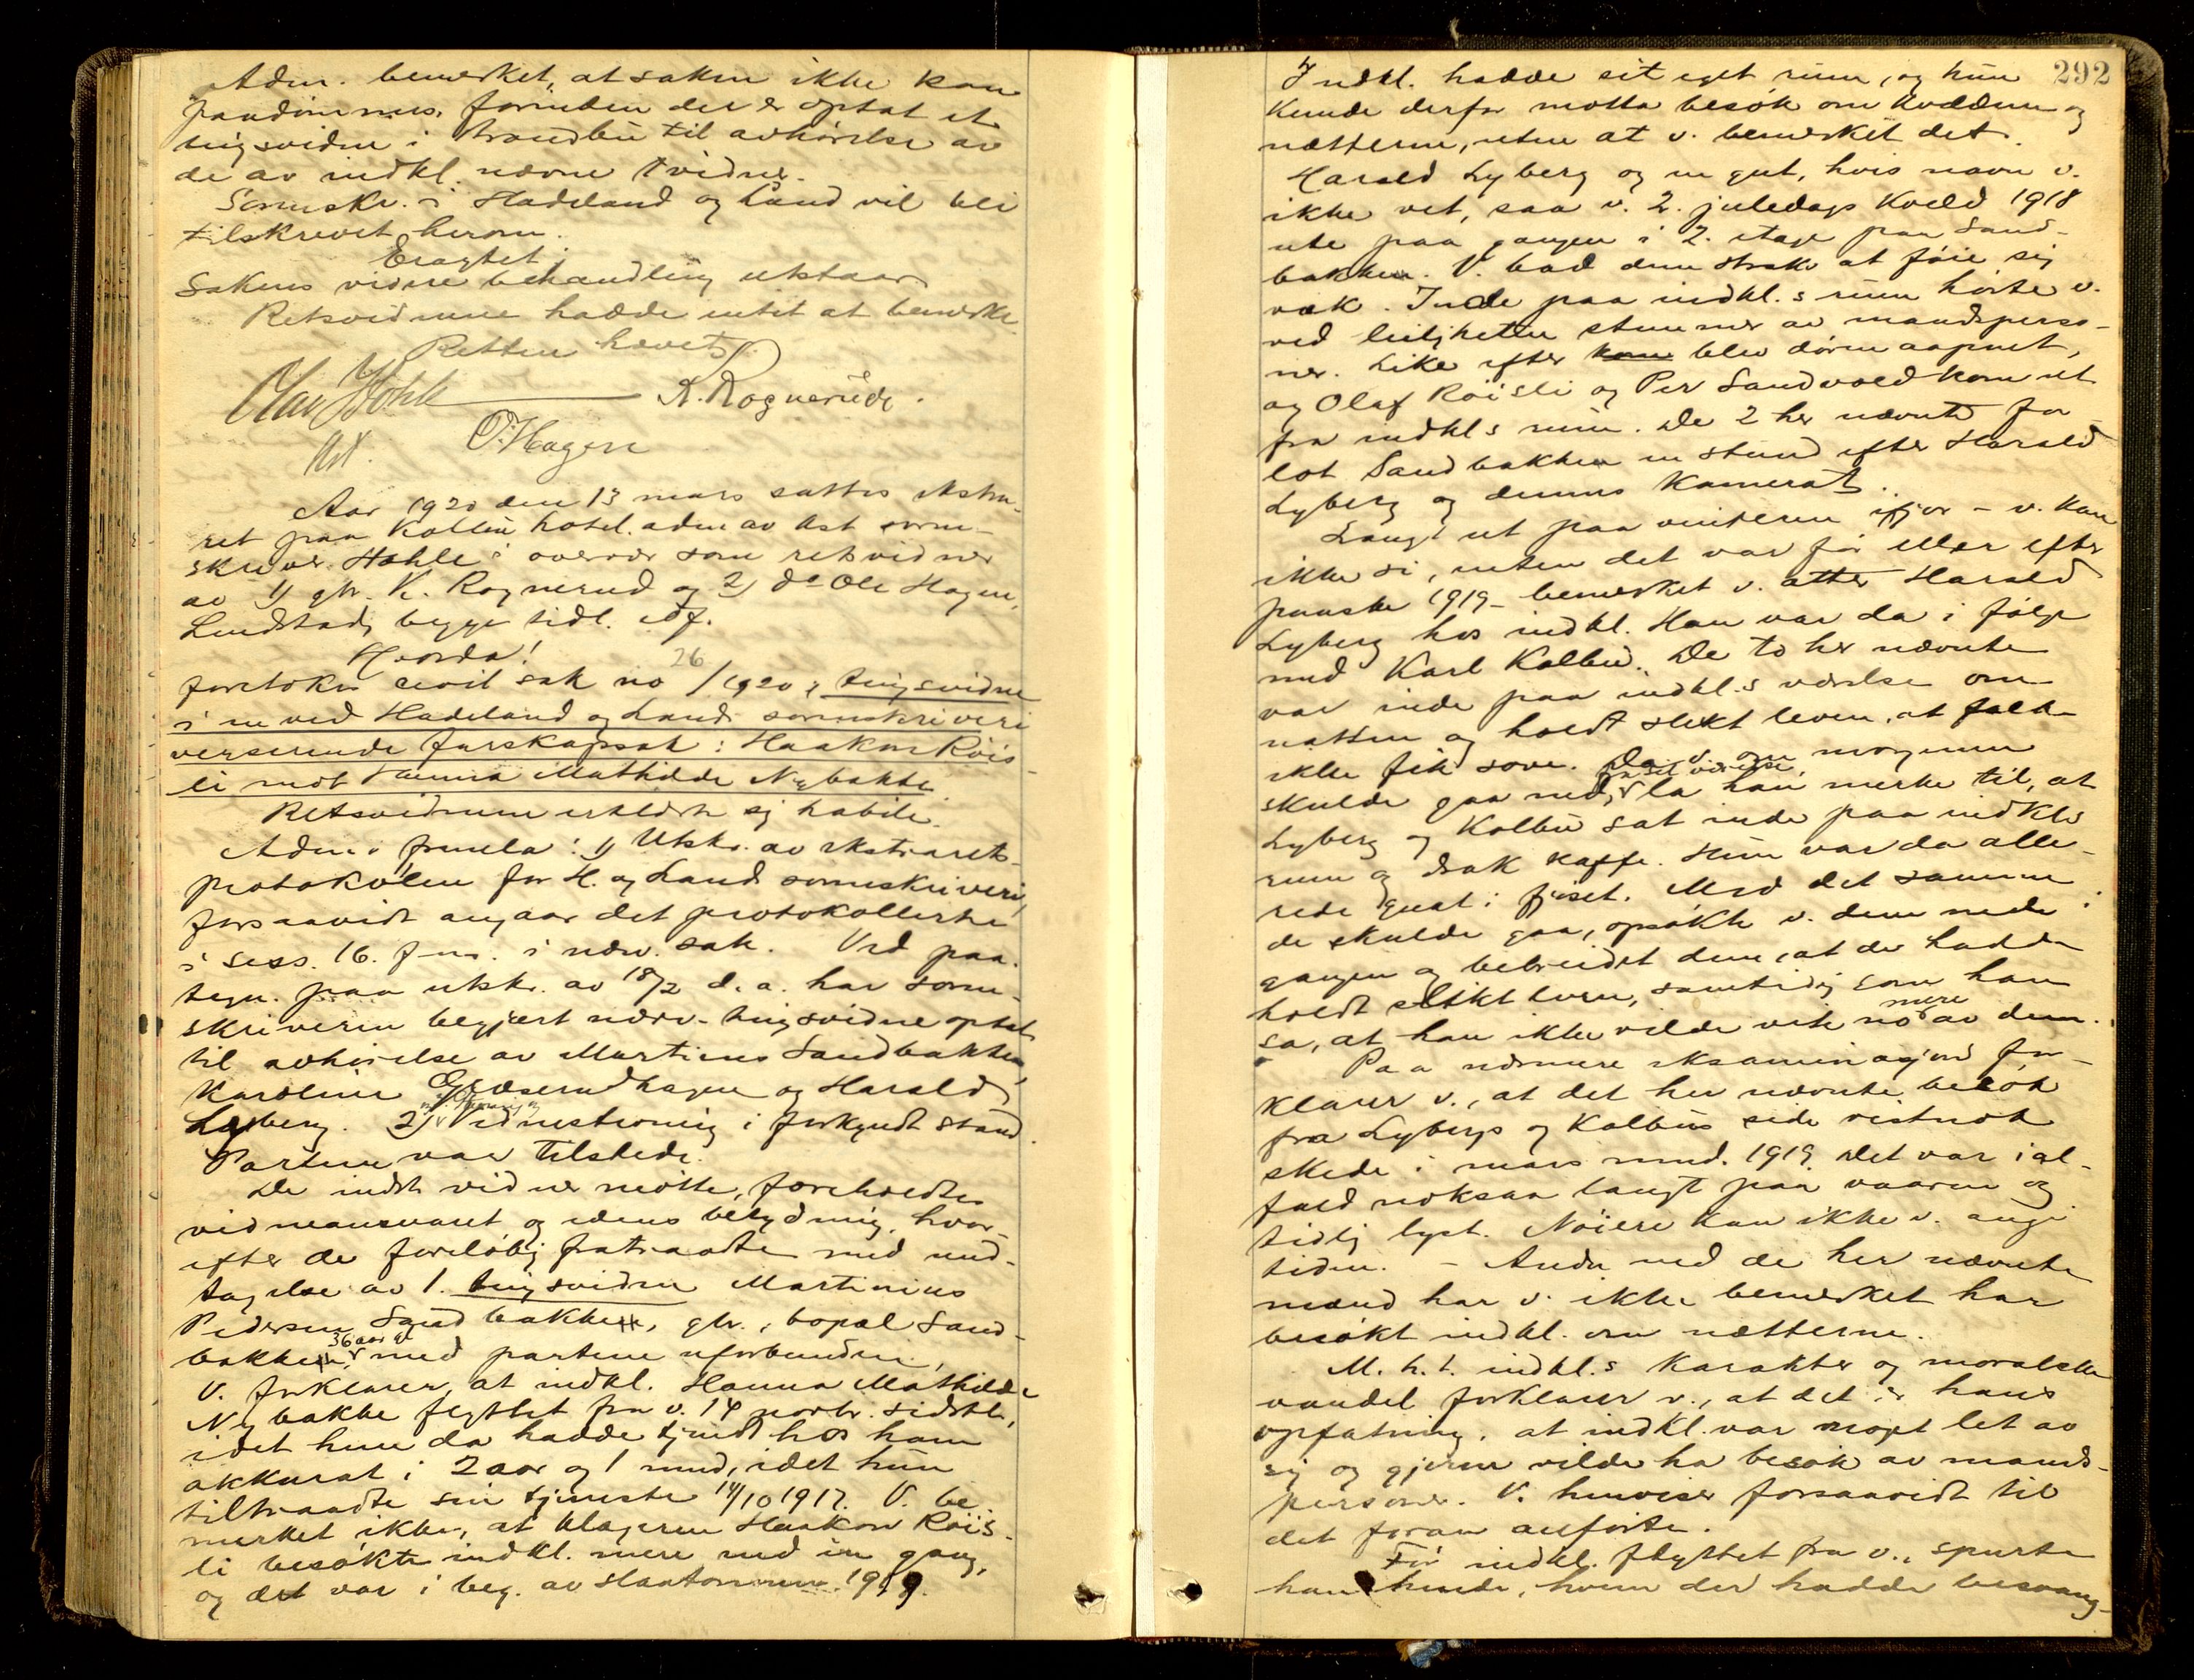 Adm. bemerket, at saken ikke kan
paadømmes, forinden der er optat et
tingsvidne i Brandbu til avhørelse av
de av indkl. nævne vidner.
Sorenskr. i Hadeland og Land vil bli
tilskrevet herom.
Eragtet:
Sakens videre behandling utstaar
Retsvidnene hadde intet at bemerke.
Retten hævet
Olav Hohle K. Rognerud.
Ast. O. Hagen
Aar 1920 den 13 mars sattes ekstra-
ret paa Kolbu hotel. adm av Ast soren-
skriver Hohle i overvær som retsvidner
av 1) gbr. K. Rognerud og 2) do Ole Hagen,
Lundstad, begge tidl. edf.
Hvorda!
foretokes civil sak no 26/1920: tingsvidne
i en ved Hadeland og Lands sorenskriveri
verserende farskapssak: Haakon Röis-
li mot Hanna Mathilde Nybakke
Retsvidnene erklærte sig habile.
Adm. fremla: 1) Utskr. av ekstrarets-
protokollen for H. og Land sorenskriveri,
forsaavidt angaar det protokollerte
i sess. 16. f.m. i nærv. sak. Ved paa-
tegn. paa utskr. av 18/2 d. a. har soren-
skriveren begjært nærv. tingsvidne optat
til avhørelse av Martinus Sandbakken,
Karoline Græserudhagen og Harald
Lyberg. 2) Vidnestevning i forkyndt stand.
Partene var tilstede.
De indst. vidner møtte, foreholdtes
vidneansvaret og edens betydning, hvor-
efter de foreløbig fratraadte med und-
tagelse av 1. tingsvidne Martinius
Pedersen Sandbakken, gbr., bopæl Sand-
bakken, 36 aar gl. med partene uforbunden,
V. forklarer, at indkl. Hanna Mathilde
Nybakke flyttet fra v. 14 novbr. sidstl.,
idet hun da hadde tjent hos ham
akkurat i 2 aar og 1 mnd, idet hun
tiltraadte sin tjeneste 14/10 1917. V. be-
merket ikke, at klageren Haakon Röis-
li besøkte indkl. mere end én gang,
og det var i beg. av slaatonnen 1919.
292
Indkl. hadde sit eget rum, og hun
kunde derfor motta besøk om kvældene og
nætterne, uten at v. bemerket det.
Harald Lyberg og en gut, hvis navn v.
ikke vet, saa v. 2. juledags kveld 1918
ute paa gangen i 2. etage paa Sand-
bakken. V. bad dem straks at føie sig
væk. Inde paa indkl.s rum hørte v.
ved leilighetten stemmer av mandsperso-
ner. Like efter kom blev døren aapnet,
og Olaf Röisli og Per Sandvold kom ut
fra indkl s rum. De 2 her nævnte for-
lot Sandbakken en stund efter Harald
Lyberg og dennes kamerat.
Langt ut paa vinteren ifjor - v. kan
ikke si, enten det var før eller efter
paaske 1919 - bemerket v. atter Harald
Lyberg hos indkl. Han var da i følge
med Karl Kolbu. De to her nævnte
var inde paa indkl.s værelse om
natten og holdt slikt leven, at folk
ikke fik sove. Da v. om morgenen
skulde gaa ned fra sit værelse, la han merke til, at
Lyberg og Kolbu sat inde paa indkls
rum og drak kaffe. Hun var da alle-
rede gaat i fjøset. Med det samme
de skulde gaa, opsøkte v. dem nede i
gangen og bebreidet dem, at de hadde
holdt slikt leven, samtidig som han
sa, at han ikke vilde vite no mere av dem.
Paa nærmere eksaminasjon for-
klarer v., at det her nævnte besøk
fra Lybergs og Kolbus side vistnok
skede i mars mnd. 1919. Det var ial-
fald noksaa langt paa vaaren og
tidlig lyst. Nöiere kan ikke v. angi
tiden. - Andre end de her nævnte
mænd har v. ikke bemerket har
besøkt indkl. om nætterne.
M. h. t. indkl.s karakter og moralske
vandel forklarer v., at det er hans
opfatning, at indkl. var meget let av
sig og gjerne vilde ha besøk av mands-
personer. V. henviser forsaavidt til
det foran anførte.
Før indkl. flyttet fra v., spurte
han hende, hvem der hadde besvang-